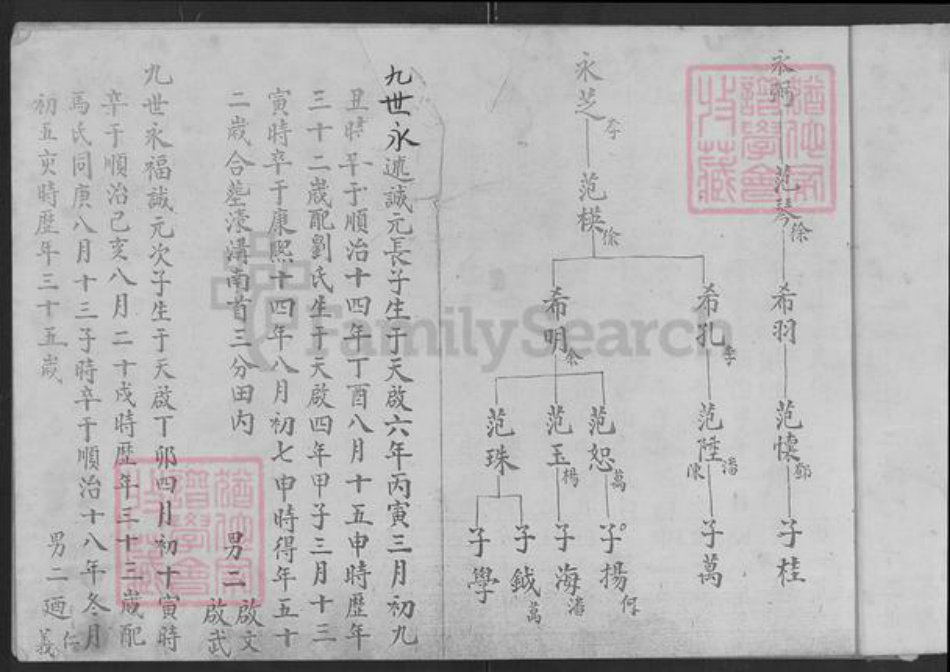 永弼
范琴 徐
希羽
范懷 鄒
子桂
永芝 李
范楧 徐
希孔 李
范陞 潘 陳
子萬
希明 余
范恕 萬
子揚 何
范玉 楊
子海 潘
范珠
子鉞 萬
子學
九世永述誠元長子生于天啟六年丙寅三月初九
丑時卒于順治十四年丁酉八月十五申時歷年
三十二歲配劉氏生于天啟四年甲子三月十三
寅時卒于康熙十四年八月初七申時得年五十
二歲合塟濠溝南首三分田内 男二 啟文 啟武
九世永福誠元次子生于天啟丁卯四月初十寅時
卒于順治己亥八月二十戌時歷年三十三歲配
馬氏同庚八月十三子時卒于順治十八年冬月
初五亥時歷年三十五歲 男二 廼仁 義
猶他家譜學會收藏
猶他家譜學會收藏
FamilySearch